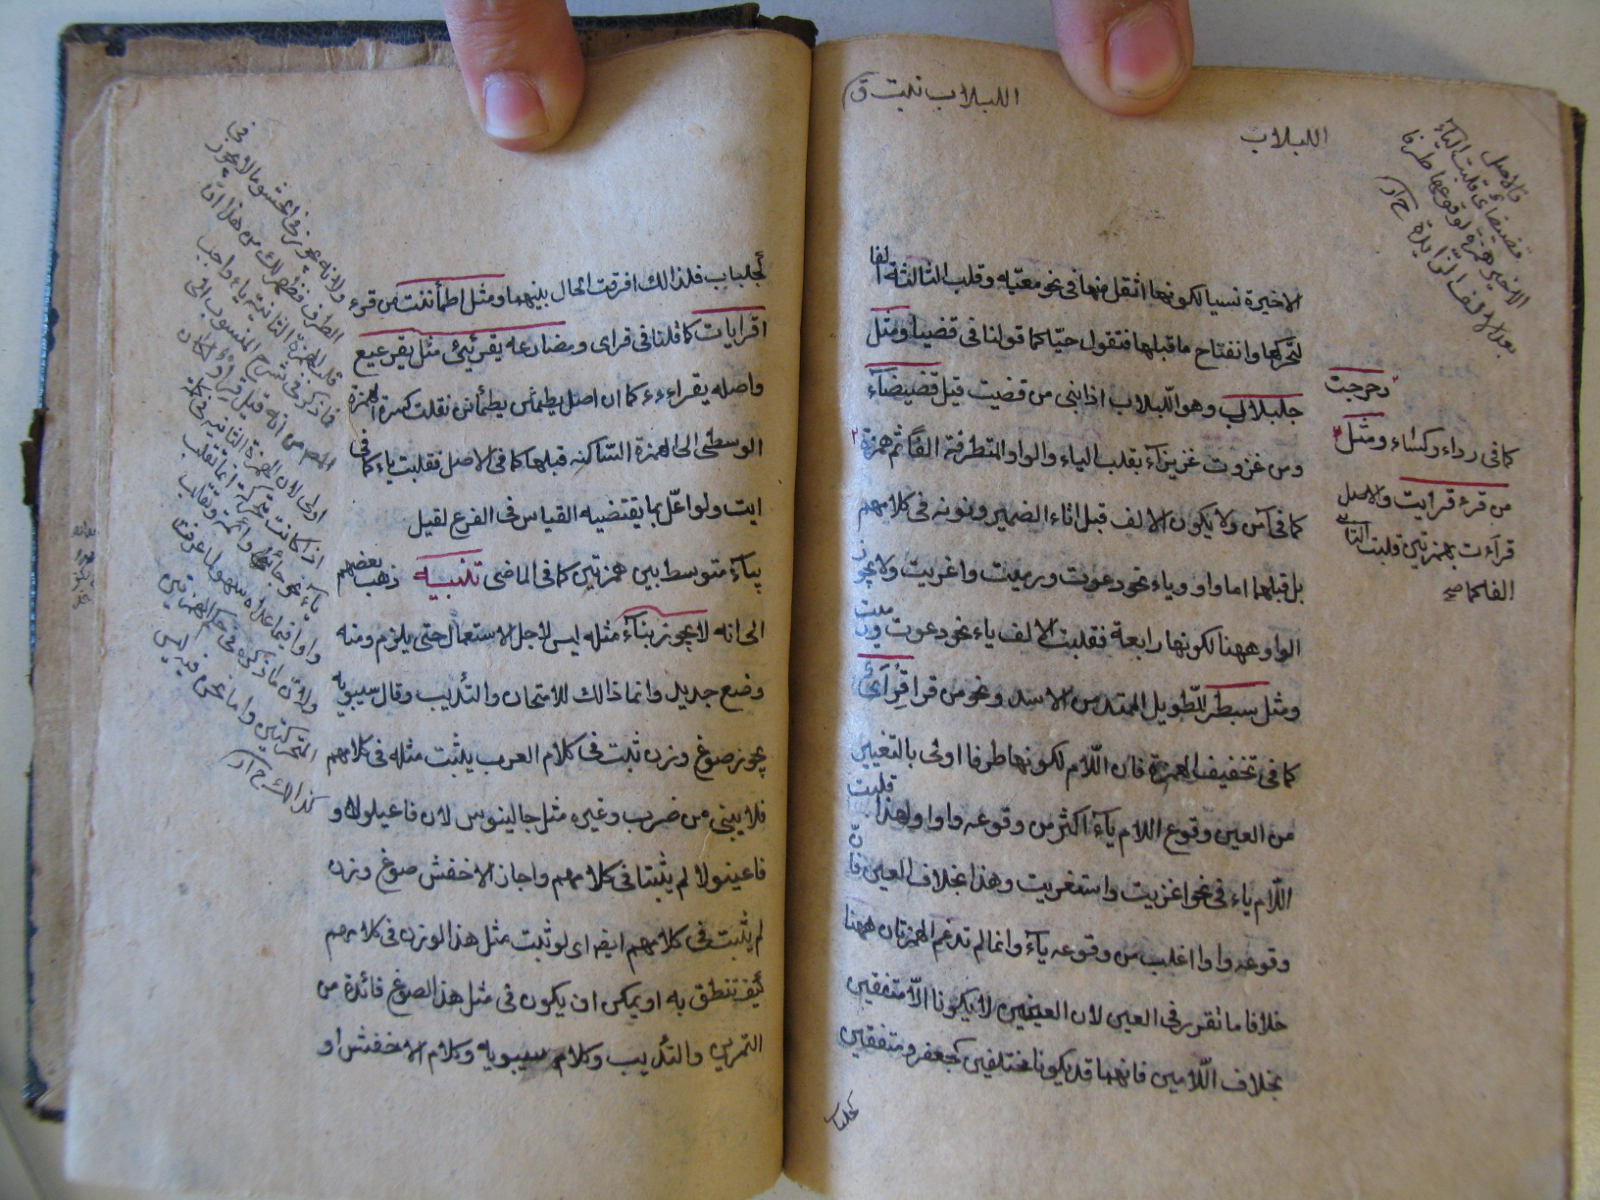 اللبلاب نبت ق
اللبلاب
الاخيرة نسيا لكونها اثقل منها في نحو معيّيه وقلب الثالثة الفا
لتحركها وانفتاح ما قبلها فتقول حيّا كما قولنا في قضيا ومثل
جلبلاب وهو اللبلاب اذا بنى من قضيت قيل قضيضاء
ومن غزوت غزيزاء بقلب الياء والواو المتطرفة الفا ثم همزة
كما في آس ولا يكون الالف قبل اتاء الضمير ونونه في كلامهم
بل قبلهما اما واو وياء نحو دعوت ورميت واغريت ولا يجوز
الواو ههنا لكونها رابعة فقلبت الالف ياء نحو دعوت ورميت
ومثل سبطر للطويل الممتد من الاسد ونحو من قرا قرأى
كما في تخفيف الهمزة فان اللام لكونها طرفا اولى بالتغيير
من العين وقوع اللام ياء اكثر من وقوعه واوا ولهذا قلبت
اللام ياء في نحو اغزيت واستغزيت وهذا بخلاف العين فان
وقوعه واوا اغلب من وقوعه ياء وانما لم تدغم الهمزتان ههنا
خلافا ما تقرر في العين لان العينين لا يكونا الا متفقين
بخلاف اللامين فانهما قد يكونا مختلفين كجعفر ومتفقين
كجلباب
فالاصل
قضيضاى قلبت الياء
الاخير همزة لوقوعها طرفا
بعد الالف الزايدة ح ار
دحرجت
كما في رداء وكساء ومثل
من قرء قرايت والاصل
قراءت بهمزتين قلبت الثانية
الفا كما صح
كجلباب فلذالك افرقت الحال بينهما ومثل اطمأننت من قرء
اقرايات كما قلنا في قراى ومضارعه يقرئيئ مثل يقرعيع
واصله يقراءءء كما ان اصل يطمئن يطمأنن نقلت كسرة الهمزة
الوسطى الى الهمزة الساكنه قبلها كما في الاصل فقلبت ياء كما في
ايت ولو اعل بما يقتضيه القياس في الفرع لقيل
بياء متوسط بين همزتين كما في الماضى تنبيه ذهب بعضهم
الى انه لا يجوز بناء مثله ليس لاجل الاستعمال حتى يلزم ومنه
وضع جديد وانما ذالك للامتحان والتدريب وقال سيبويه
يجوز صوغ وزن ثبت في كلام العرب يثبت مثله في كلامهم
فلا يبنى من ضرب وغيره مثل جالينوس لان فاعيلولا و
فاعينولا لم يثبتا في كلامهم واجاز الاخفش صوغ وزن
لم يثبت في كلامهم ايضه اى لو ثبت مثل هذا الوزن في كلامهم
كيف تنطق به او يمكن ان يكون في مثل هذا الصوغ فائدة من
التمرين والتدريب وكلام سيبويه وكلام الاخفش او
ولانه يجوز في الحشو ما لا يجوز في
الطرف فظهر لك من هذا ان
قلب الهمزة الثانية ياء واجب
اولى لان الهمزة الثانية في
اذا كانت متحركة انما تقلب
كذالك ح ار